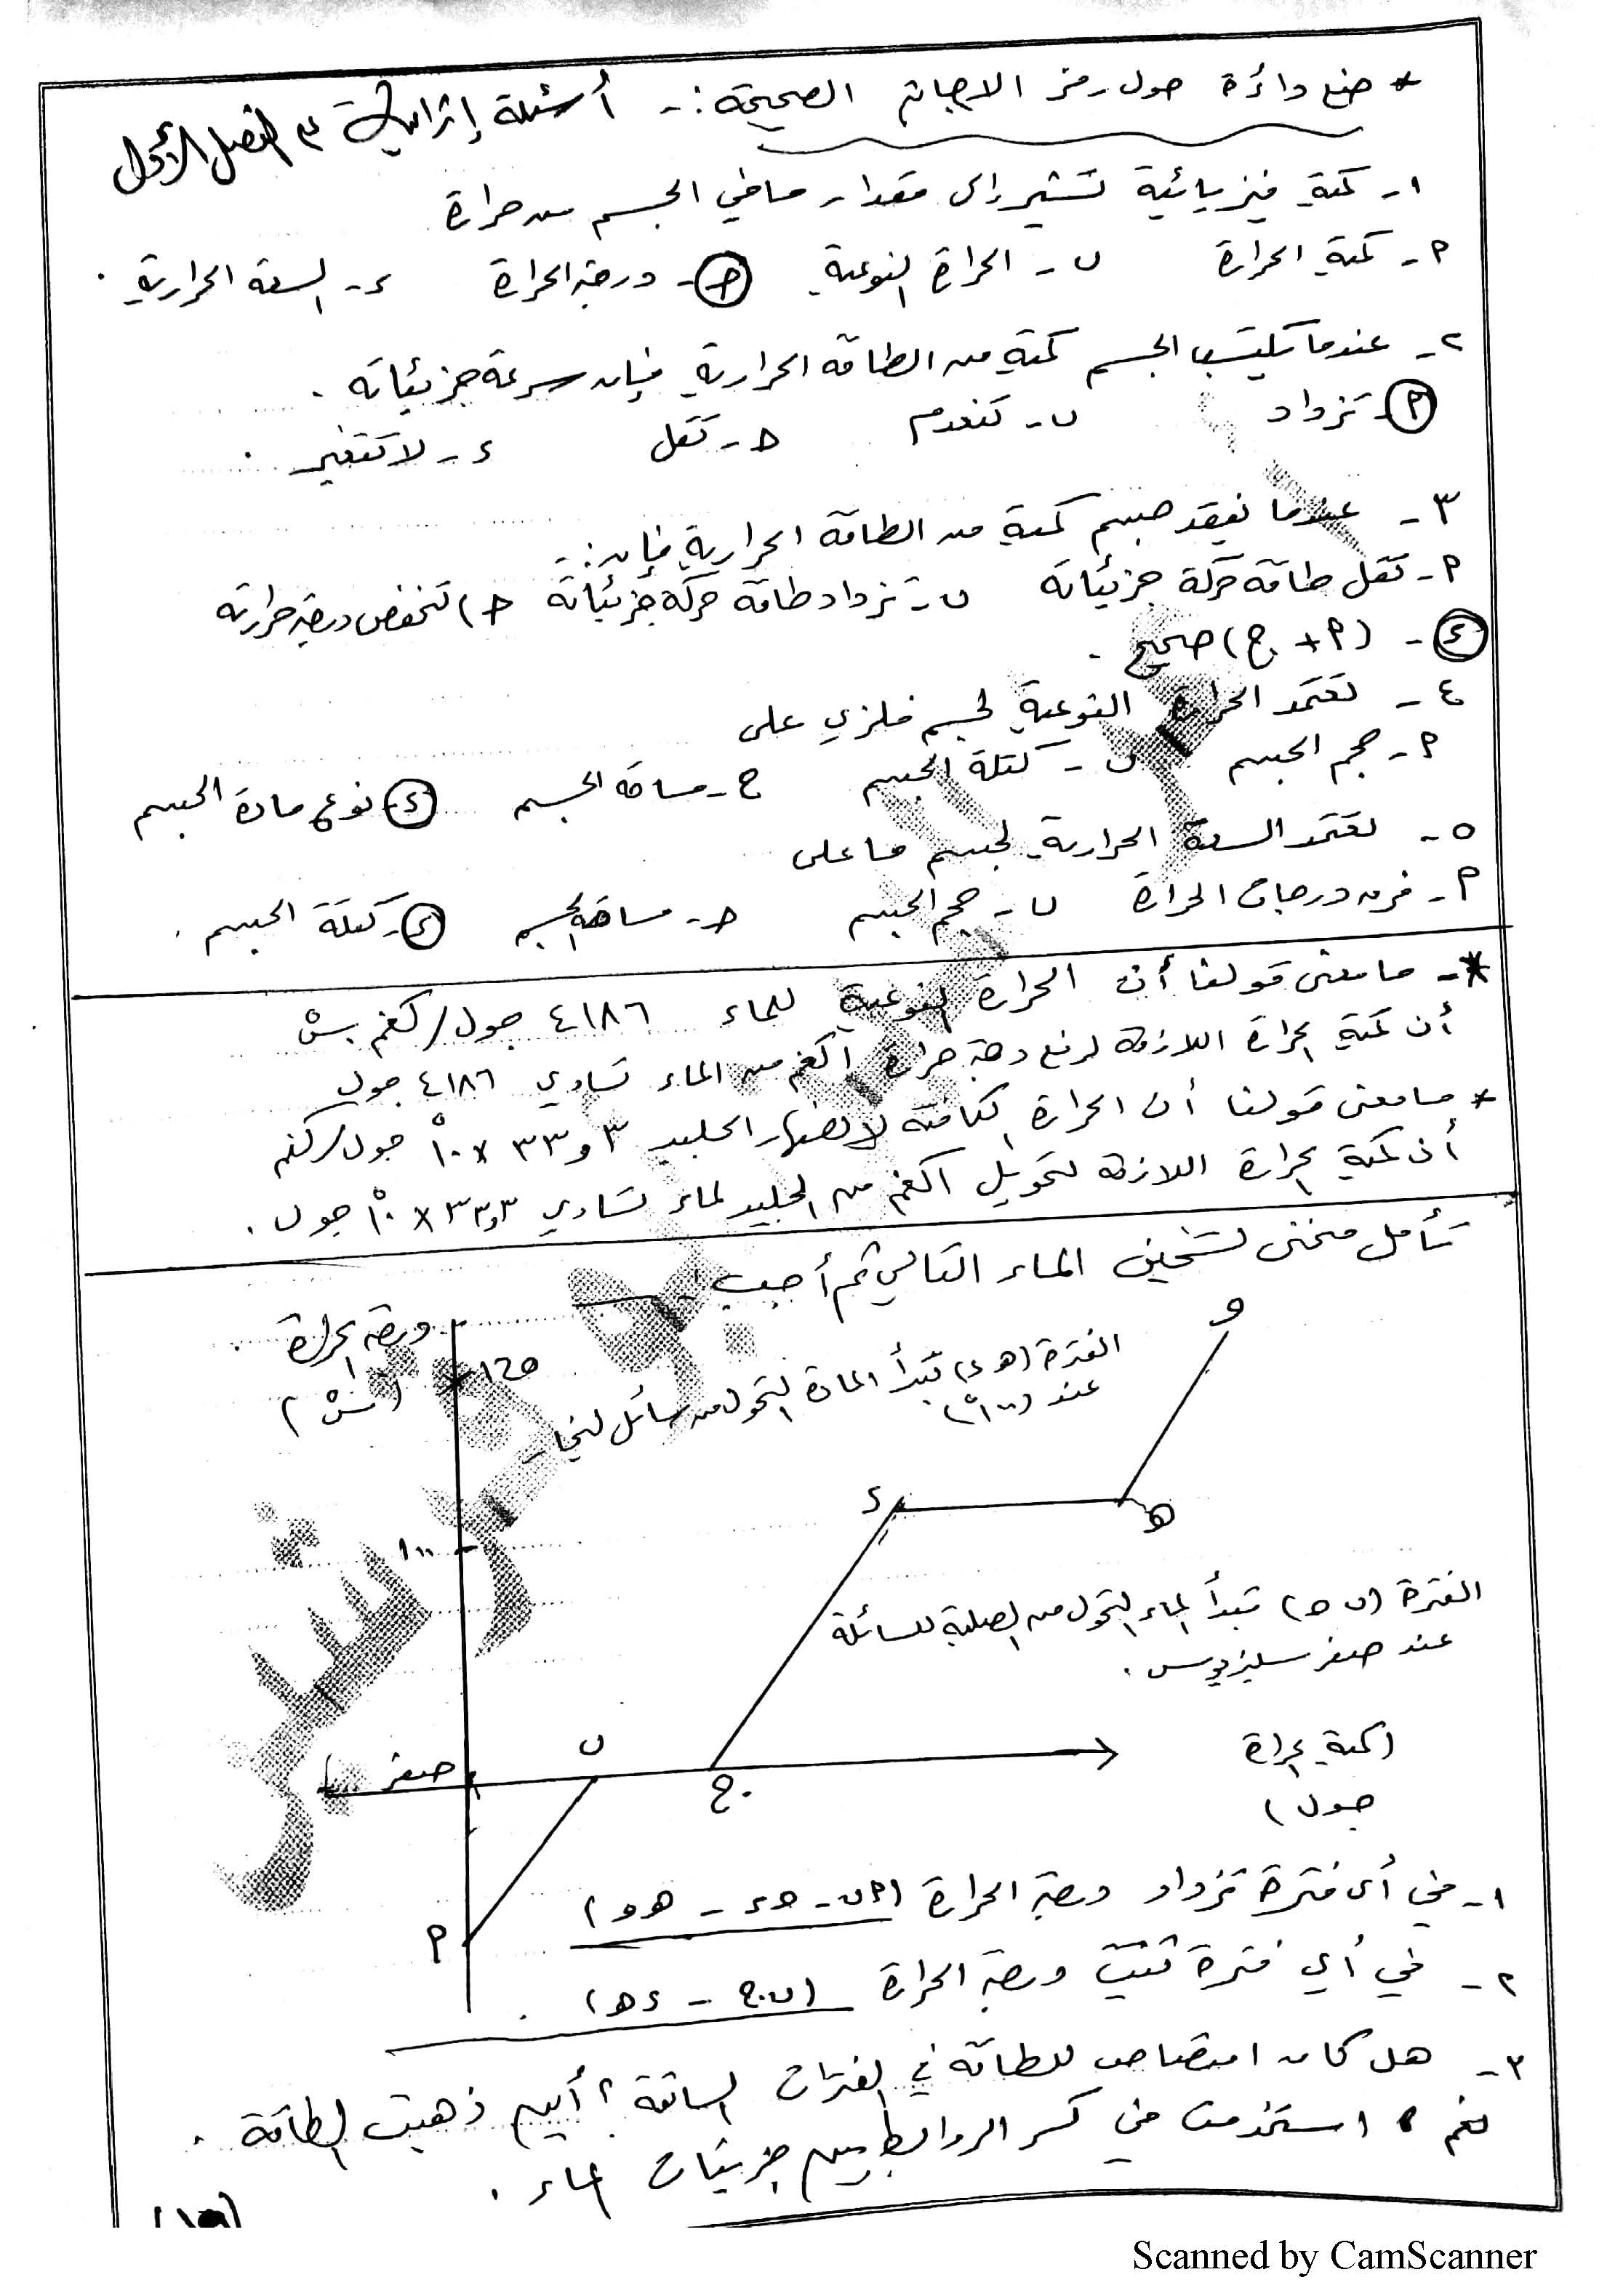 * ضع دائرة حول رمز الاجابة الصحيحة :- أسئلة إثرائية ع الفصل الأول
١- كمية فيزيائية تشير إلى مقدار ما في الجسم من حرارة
٢- كمية الحرارة ب- الحرارة النوعية ج- درجة الحرارة د- السعة الحرارية .
٢- عندما يكتسب الجسم كمية من الطاقة الحرارية فإن سرعة جزيئاته .
أ- تزداد ب- تنعدم ج- تقل د- لا تتغير .
٣- عندما يفقد جسم كمية من الطاقة الحرارية فإن :-
أ- تقل طاقة حركة جزيئاته ب- تزداد طاقة حركة جزيئاته ج) تنخفض درجة حرارته
د- (أ + ج) صحيح .
٤- تعتمد الحرارة النوعية لجسم فلزي على
أ- حجم الجسم ب- كتلة الجسم ج- مساحة الجسم د- نوع مادة الجسم
٥- تعتمد السعة الحرارية لجسم ما على
أ- فرق درجات الحرارة ب- حجم الجسم ج- مساحة الجسم د- كتلة الجسم .
*- ما معنى قولنا أن الحرارة النوعية للماء ٤١٨٦ جول/كغم.سْ
أن كمية الحرارة اللازمة لرفع درجة حرارة ١كغم من الماء تساوي ٤١٨٦ جول
* ما معنى قولنا أن الحرارة الكامنة لانصهار الجليد ٣و٣٣ × ١٠°  جول/كغم
أن كمية الحرارة اللازمة لتحويل ١كغم من الجليد لماء تساوي ٣و٣٣ × ١٠° جول .
تأمل منحنى تسخين الماء التالي ثم أجب :-
درجة الحرارة
(سْ)
١٢٥
و
الفترة (هـ د) تبدأ المادة بالتحول من سائل لبخار
عند (١٠٠ْ)
د
هـ
١٠٠
الفترة (ب ج) تبدأ الماء بالتحول من الصلبة للسائلة
عند صفر سليزيوس .
صفر
ب
ج
(كمية الحرارة
جول)
أ
١- في أي فترة تزداد درجة الحرارة (أب - جـ د - هـ و)
٢- في أي فترة تثبت درجة الحرارة (ب ج - د هـ) .
٣- هل كان امتصاص للطاقة في الفترات السابقة ؟ أين ذهبت الطاقة .
نعم ، استخدمت في كسر الروابط بين جزيئات الماء .
Scanned by CamScanner